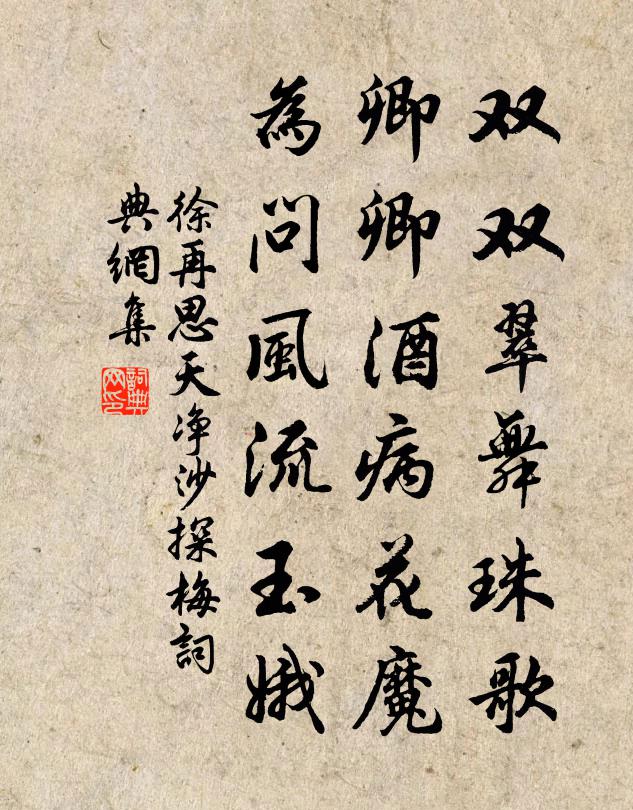 双双翠舞珠歌
卿卿酒病花魔
為问風流玉娥
徐再思天净沙探梅詞
典網集
詞典網印